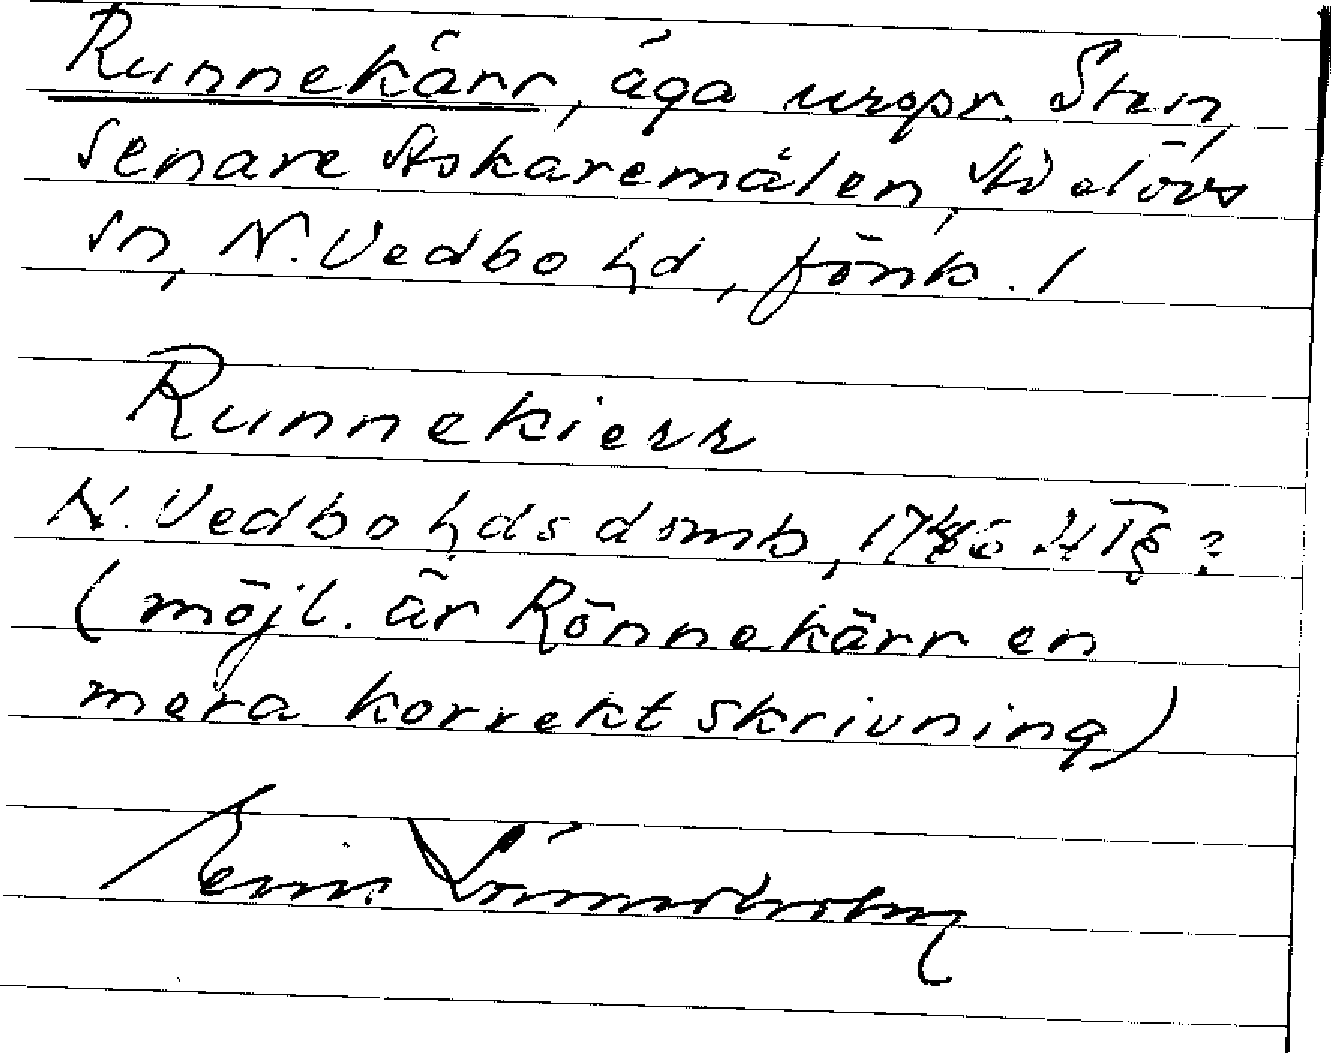 Runnekärr, äga urspr. Sten,
senare Askaremålen, Adelövs
sn, N. Vedbo hd, Jönk. l
Runnekierr
N. Vedbo hds domb,
(möjl. är Rönnekärr en
mera korrekt skrivning)